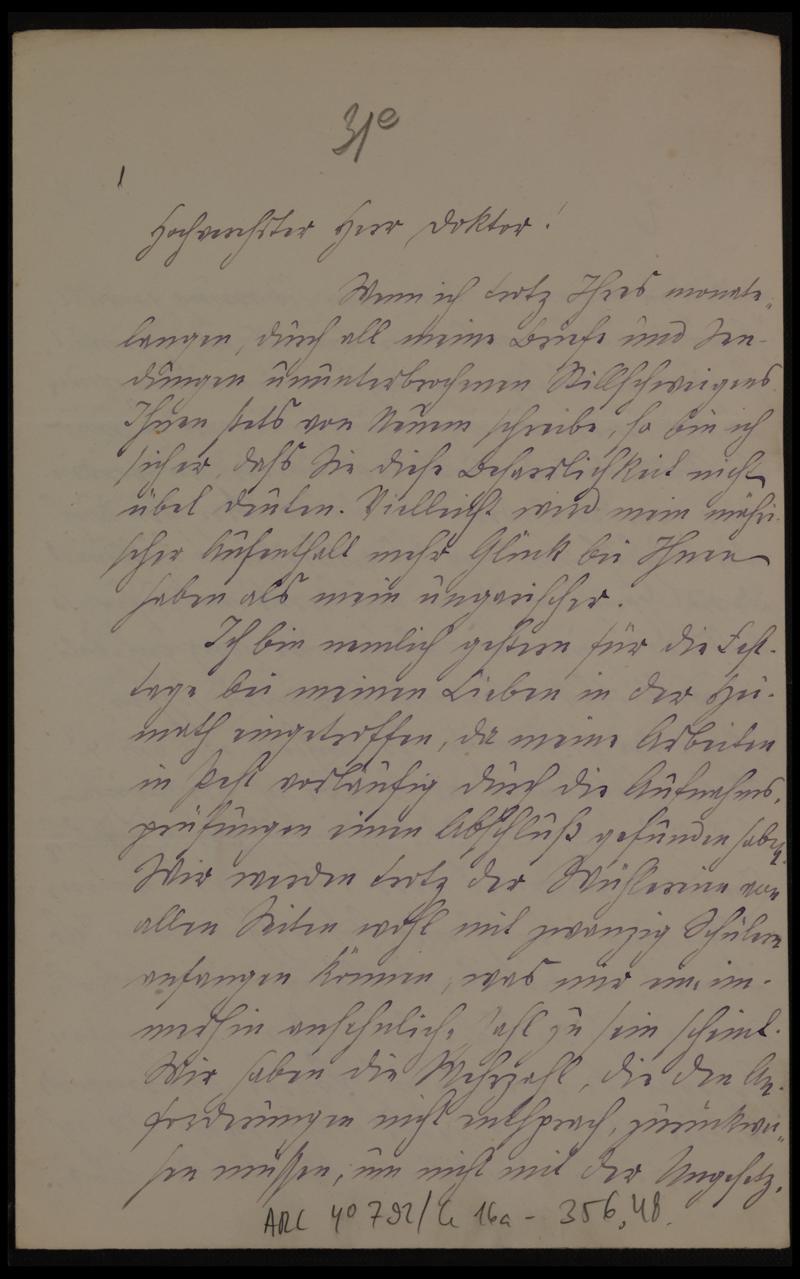 31e
1
Hochverehrter Herr Doktor!
Wenn ich trotz Ihres monate-
langen, durch all meine Briefe und Sen-
dungen ununterbrochenen Stillschweigens
Ihnen stets von Neuem schreibe, so bin ich
sicher, dass Sie diese Beharrlichkeit nicht
übel deuten. Vielleicht wird mein mähri-
scher Aufenthalt mehr Glück bei Ihnen
haben als mein ungarischer.
Ich bin nemlich gestern für die Fest-
tage bei meinen Lieben in der Hei-
math eingetroffen, da meine Arbeiten
in Pest vorläufig durch die Aufnahms-
prüfungen einen Abschluß gefunden haben.
Wir werden trotz der Wühlereien von
allen Seiten wohl mit zwanzig Schülern
anfangen können, was mir eine im-
merhin ansehnliche Zahl zu sein scheint.
Wir haben die Mehrzahl, die den An-
forderungen nicht entsprach, zurückwei-
sen müssen, um nicht mit der Ungesetz-
ARC 4° 792/ 16a - 356,48.